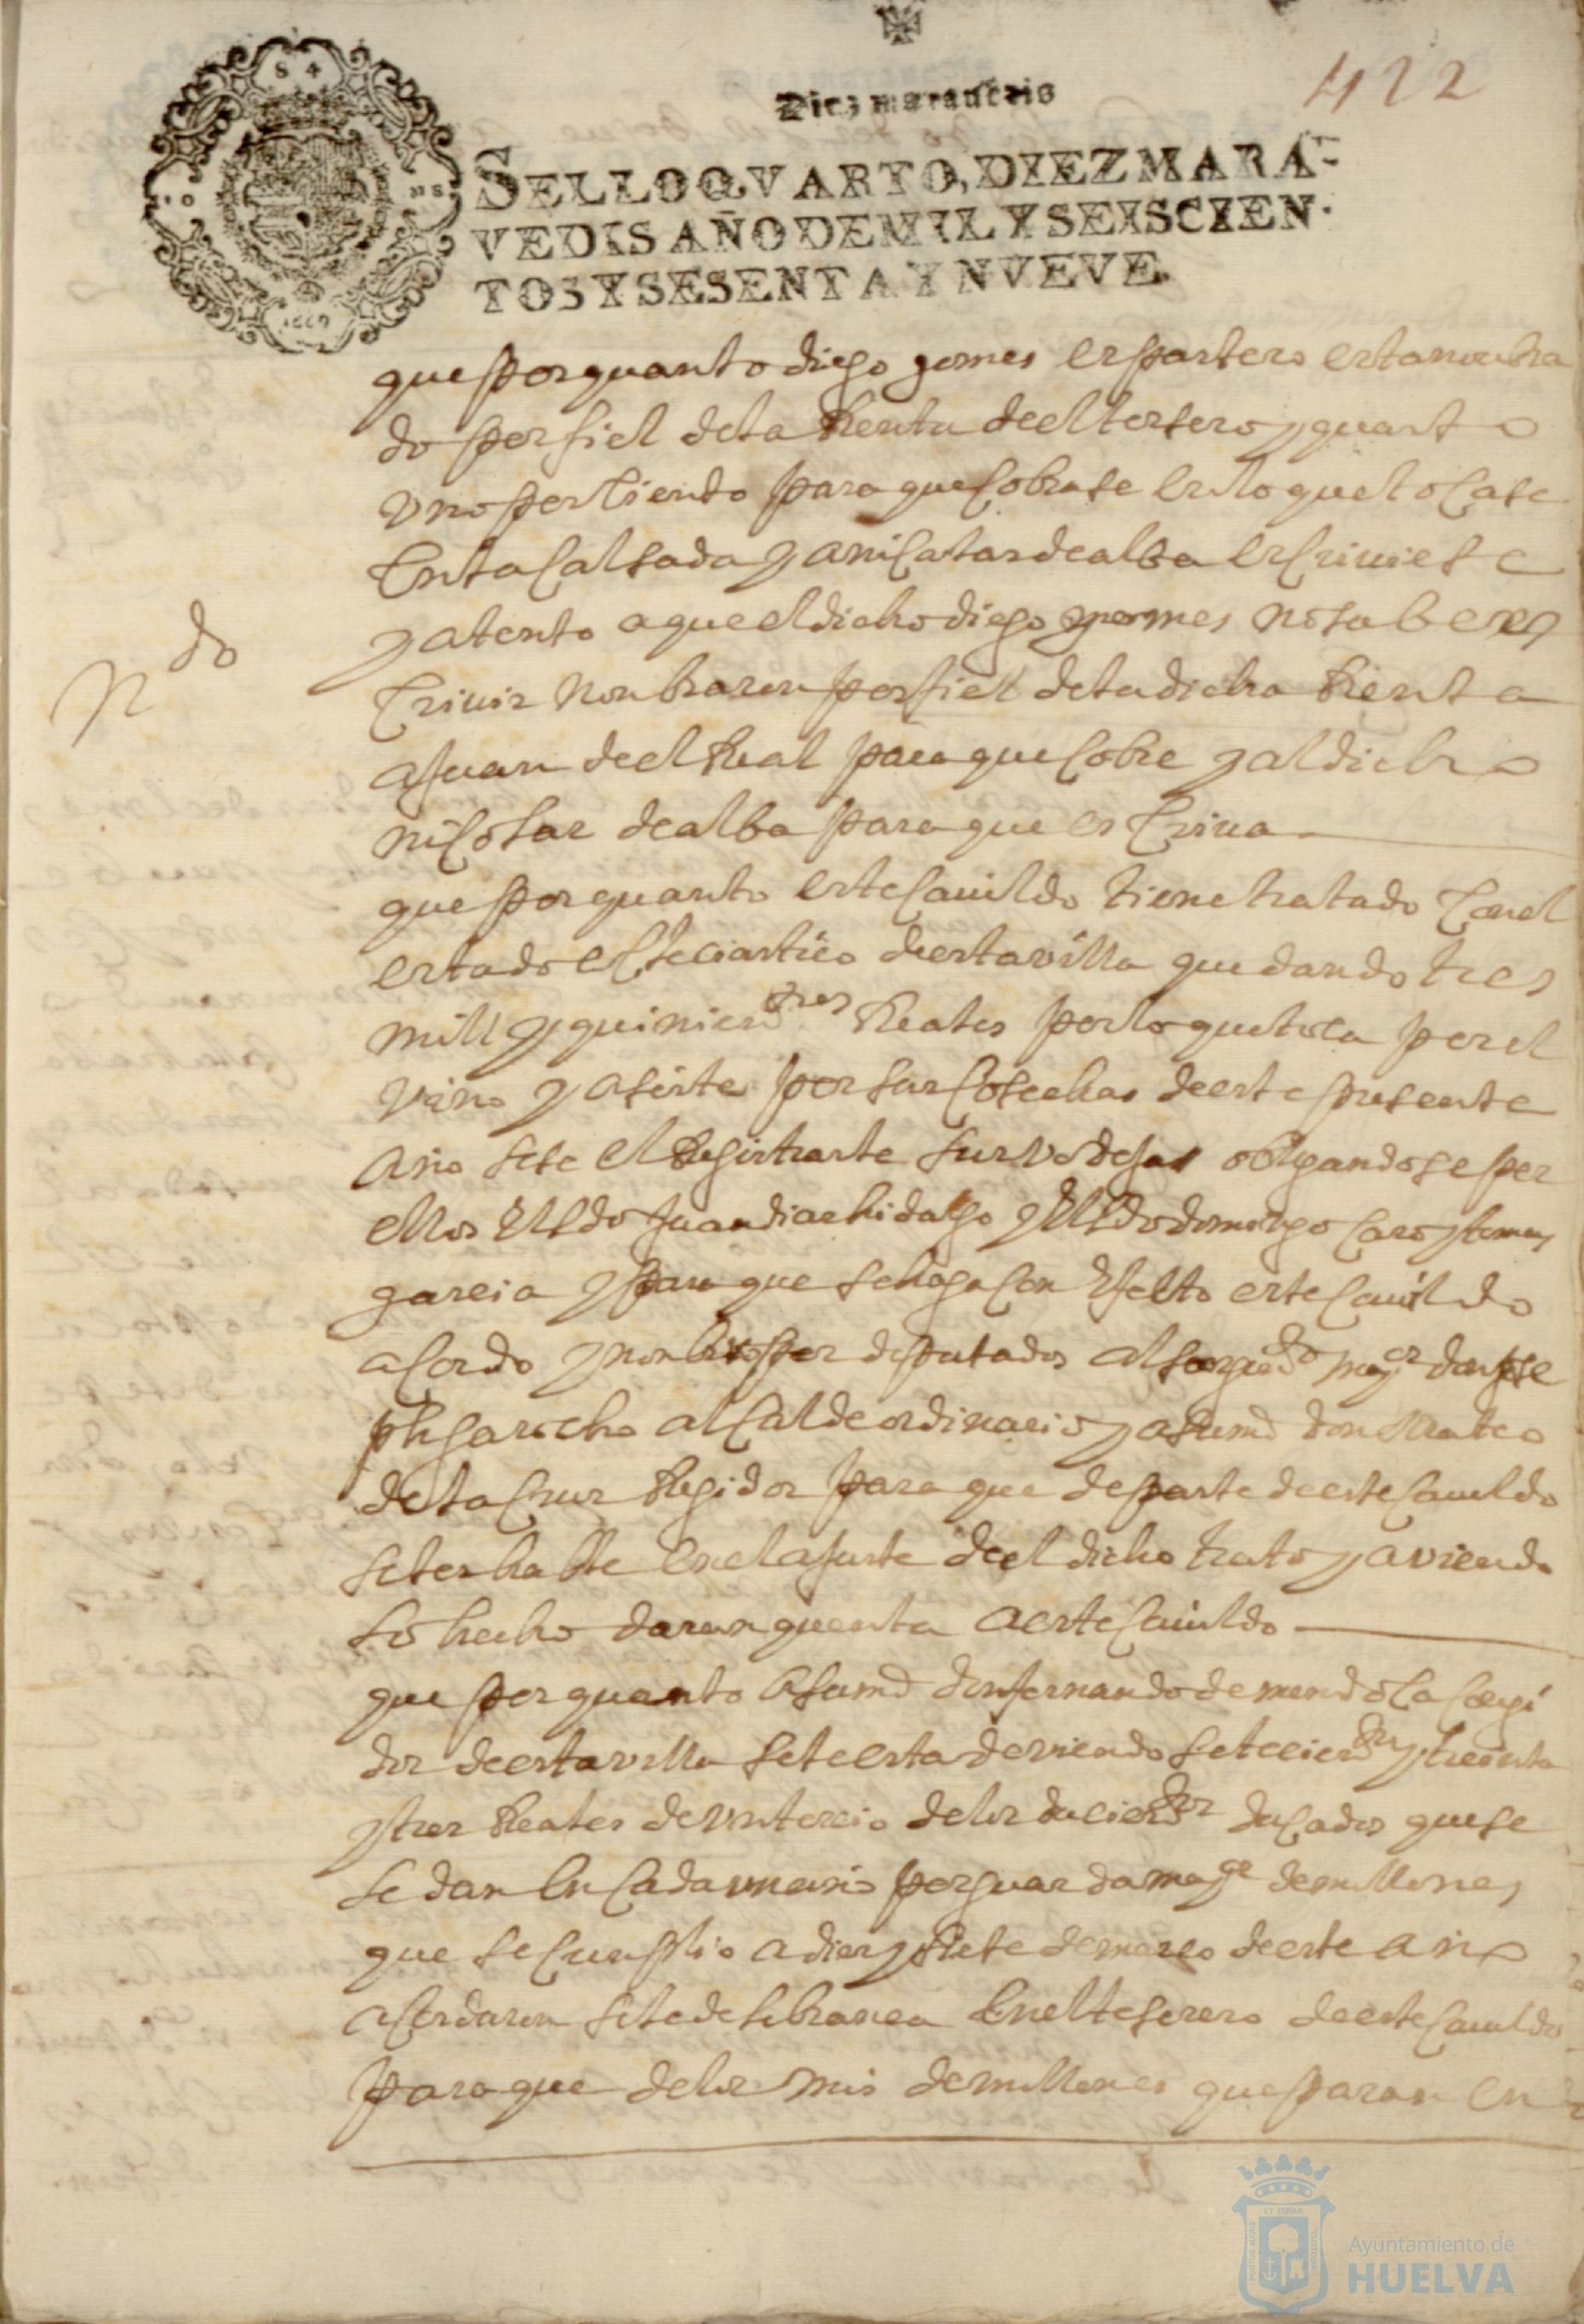 422
Diez marauedis
SELLO QVARTO, DIEZ MARA-
VEDIS AÑO DE MIL Y SEISCIEN-
TOS Y SESENTA Y NVEVE.
que por quanto diego gomes espartero esta nonbra
do por fiel de la Renta de el tersero y quarto
vno por siento para que cobrase en lo que tocase
En la calsada y a nicolas de alba escriuiese
y atento a que el dicho diego gomes no sabe es
Criuir nonbraron por fiel de la dicha Renta
a Juan de el Real para que cobre y al dicho
nicolas de alba para que es Criua
que por quanto este Cauildo tiene tratado Con el
estado eclesiastico de esta villa que dando tres
mill y quinientos Reales por lo que toca por el
vino y aseite por sus Cosechas de este presente
año se le el Registrarle sus vodegas obligandose por
ellos El Ldo Juan dias hidalgo y El Ldo domingo caro y tomas
garcia y para que se haga con Efecto este Cauildo
acordo y nonbro por diputados al sargto mayor don Jose
ph garrocho alcalde ordinario y a su md don Mateo
de la Crus Regidor para que de parte de este Cauildo
se les hable en el ajuste de el dicho trato y aviendo
lo hecho daran quenta a este Cauildo
que por quanto A su md don fernando de mendosa Coregi
dor de esta villa se le esta deviendo setecientos y treinta
y tres Reales de vn tercio de los ducientos ducados que se
le dan En cada vn año por guarda mayor de millones
que se cunplio a dies y siete de março de este año
acordaron se le de librança En el tesorero de este Cauildo
para que de los mrs de millones que paran en
N do
S 4
1669
Ayuntamiento de
HUELVA